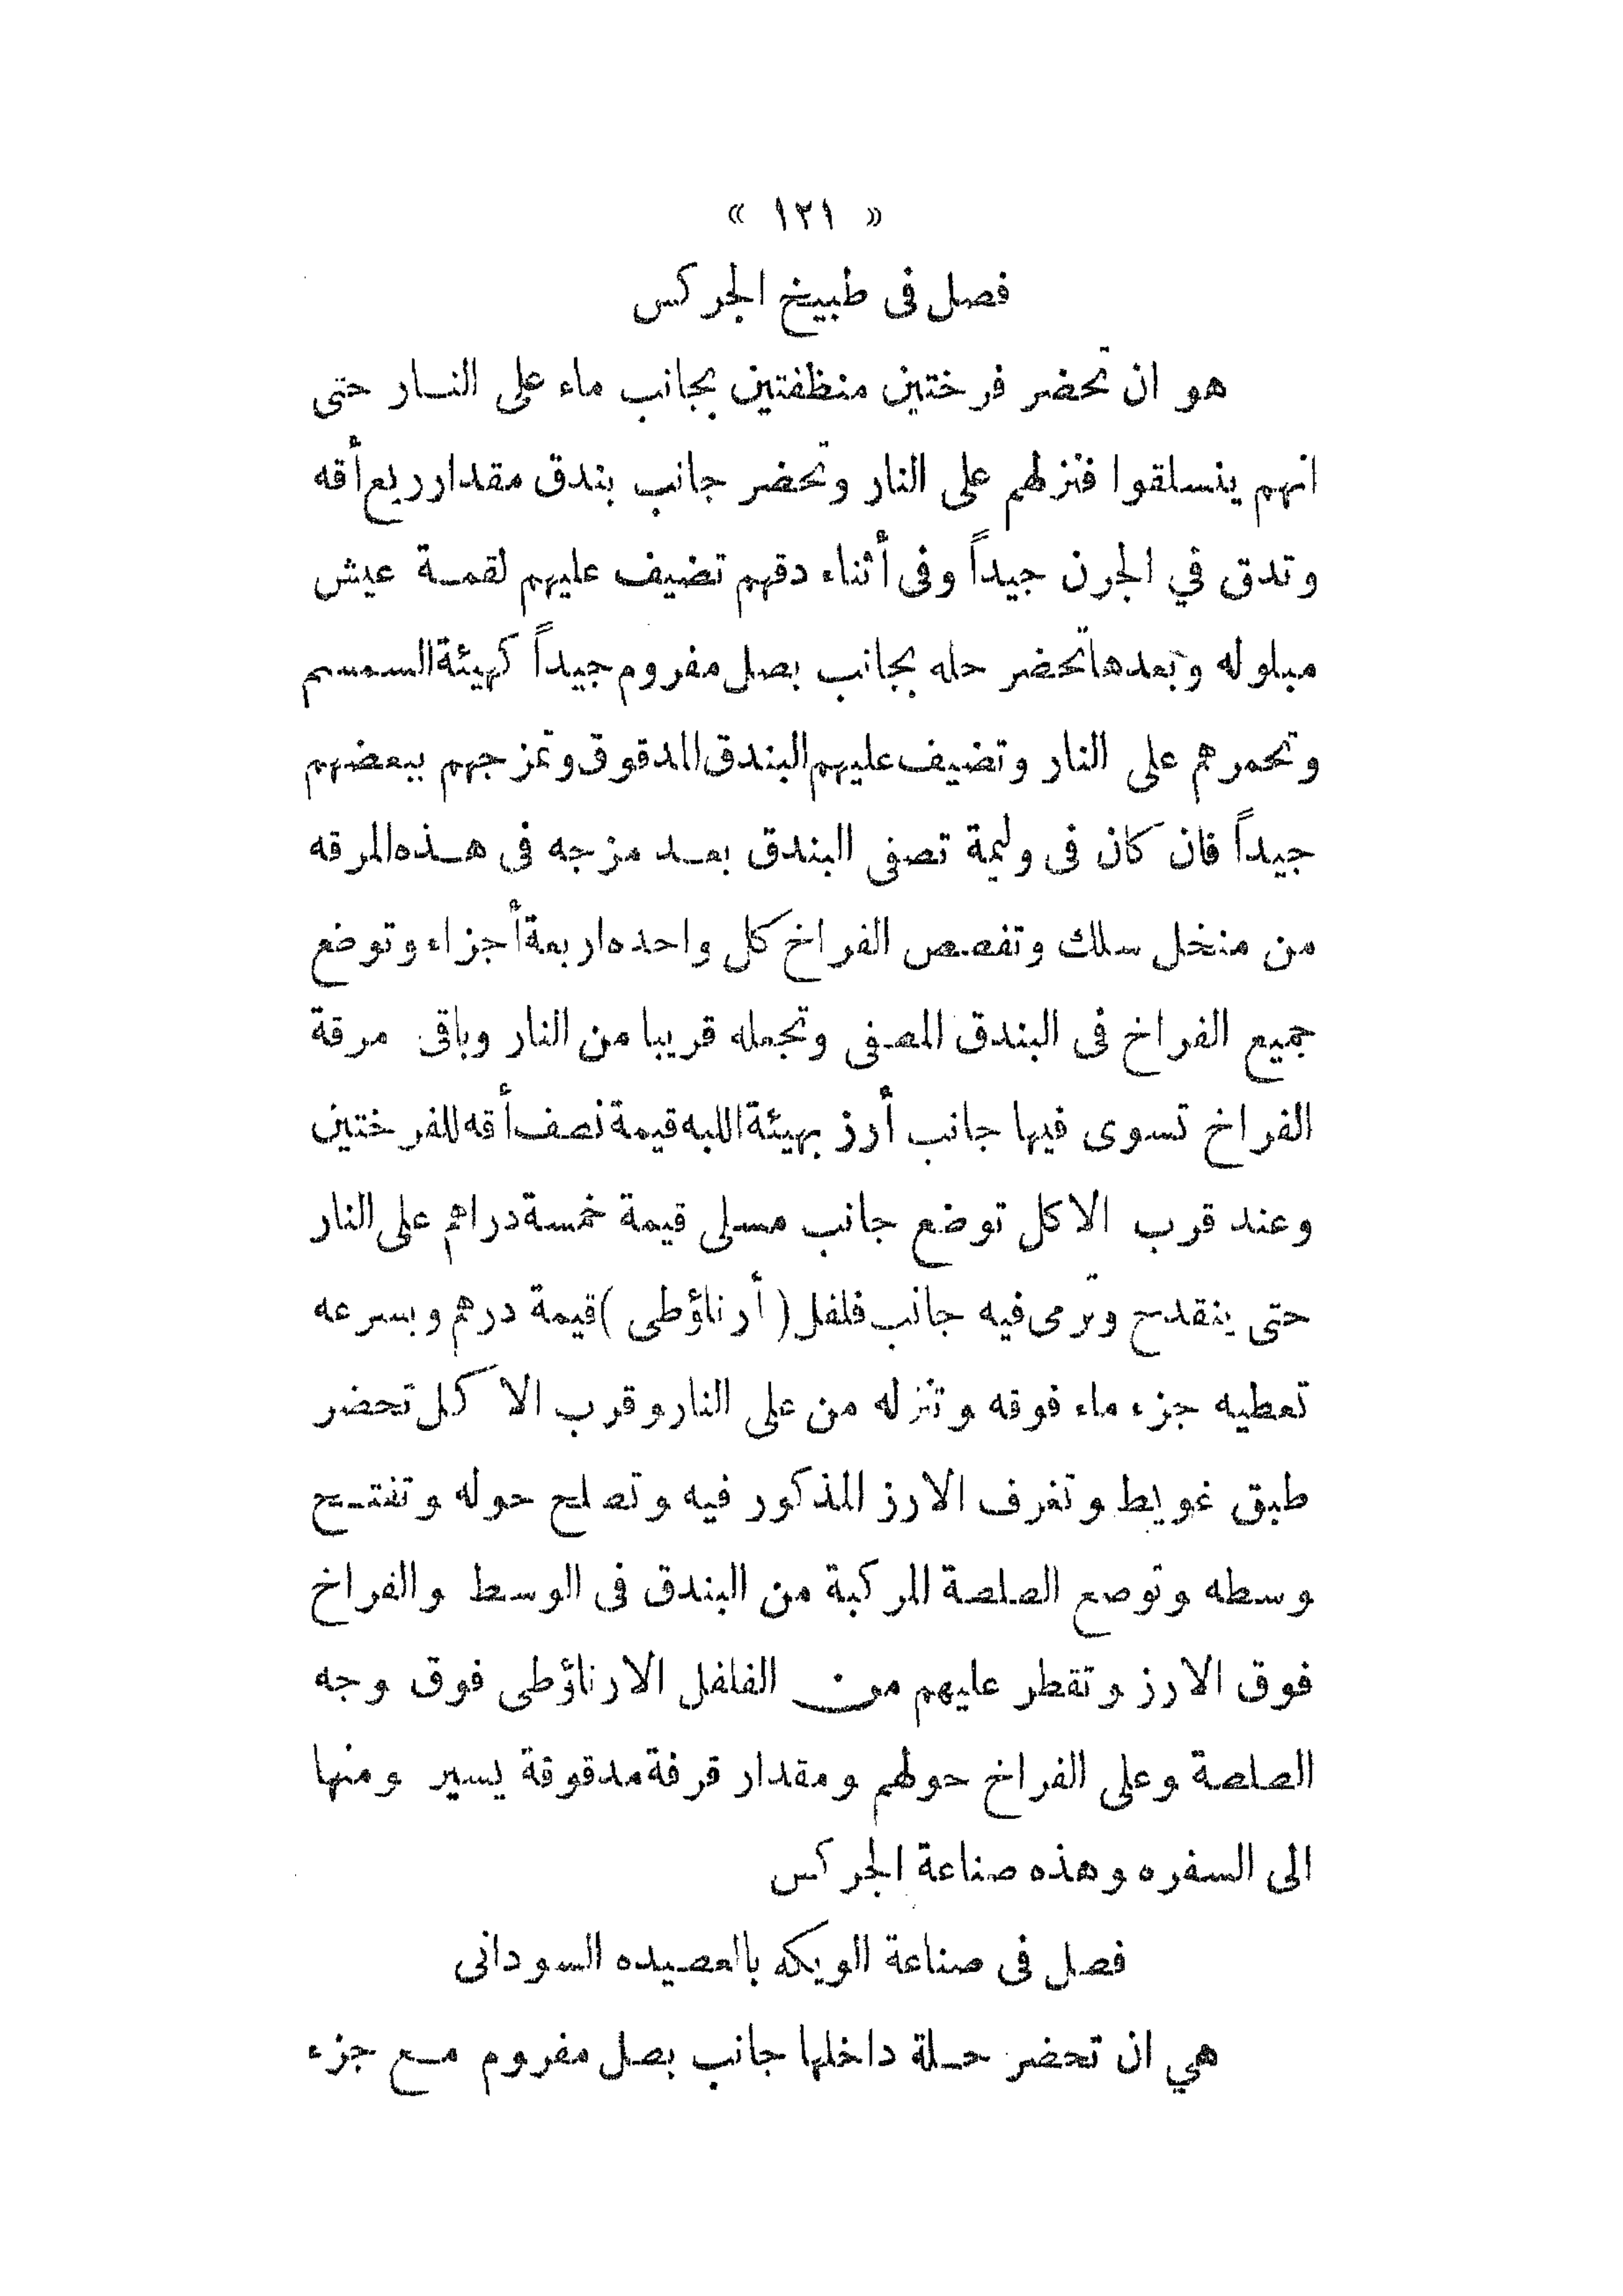 « ١٢١ »
فصل فى طبيخ الجركس
هو ان تحضر فرختين منظفتين بجانب ماء على النار حتى
انهم ينسلقوا فتزلهم على النار وتحضر جانب بندق مقدار ربع أقه
وتدق في الجرن جيداً وفى أثناء دقهم تضيف عليهم لقمة عيش
مبلوله وبعدها تحضر حله بجانب بصل مفروم جيداً كهيئة السمسم
وتحمرهم على النار وتضيف عليهم البندق المدقوق وتمزجهم ببعضهم
جيداً فان كان فى وليمة تصفى البندق بعد مزجه فى هذه المرقه
من منخل سلك وتفصص الفراخ كل واحده اربعة أجزاء وتوضع
جميع الفراخ فى البندق المصفى وتجعله قريبا من النار وباقى مرقة
الفراخ تسوى فيها جانب أرز بهيئة اللبه قيمة نصف أقه للفرختين
وعند قرب الاكل توضع جانب مسلى قيمة خمسة دراهم على النار
حتى ينقدح وترمى فيه جانب فلفل (أرناؤطى) قيمة درهم وبسرعه
تعطيه جزء ماء فوقه وتنزله من على النار وقرب الاكل تحضر
طبق غويط وتغرف الارز المذكور فيه وتصلح حوله وتفتح
وسطه وتوصع الصلصة المركبة من البندق فى الوسط والفراخ
فوق الارز وتقطر عليهم من الفلفل الارناؤطى فوق وجه
الصلصة وعلى الفراخ حولهم ومقدار قرفة مدقوقة يسير ومنها
الى السفره وهذه صناعة الجركس
فصل فى صناعة الويكه بالعصيده السودانى
هي ان تحضر حلة داخلها جانب بصل مفروم مع جزء